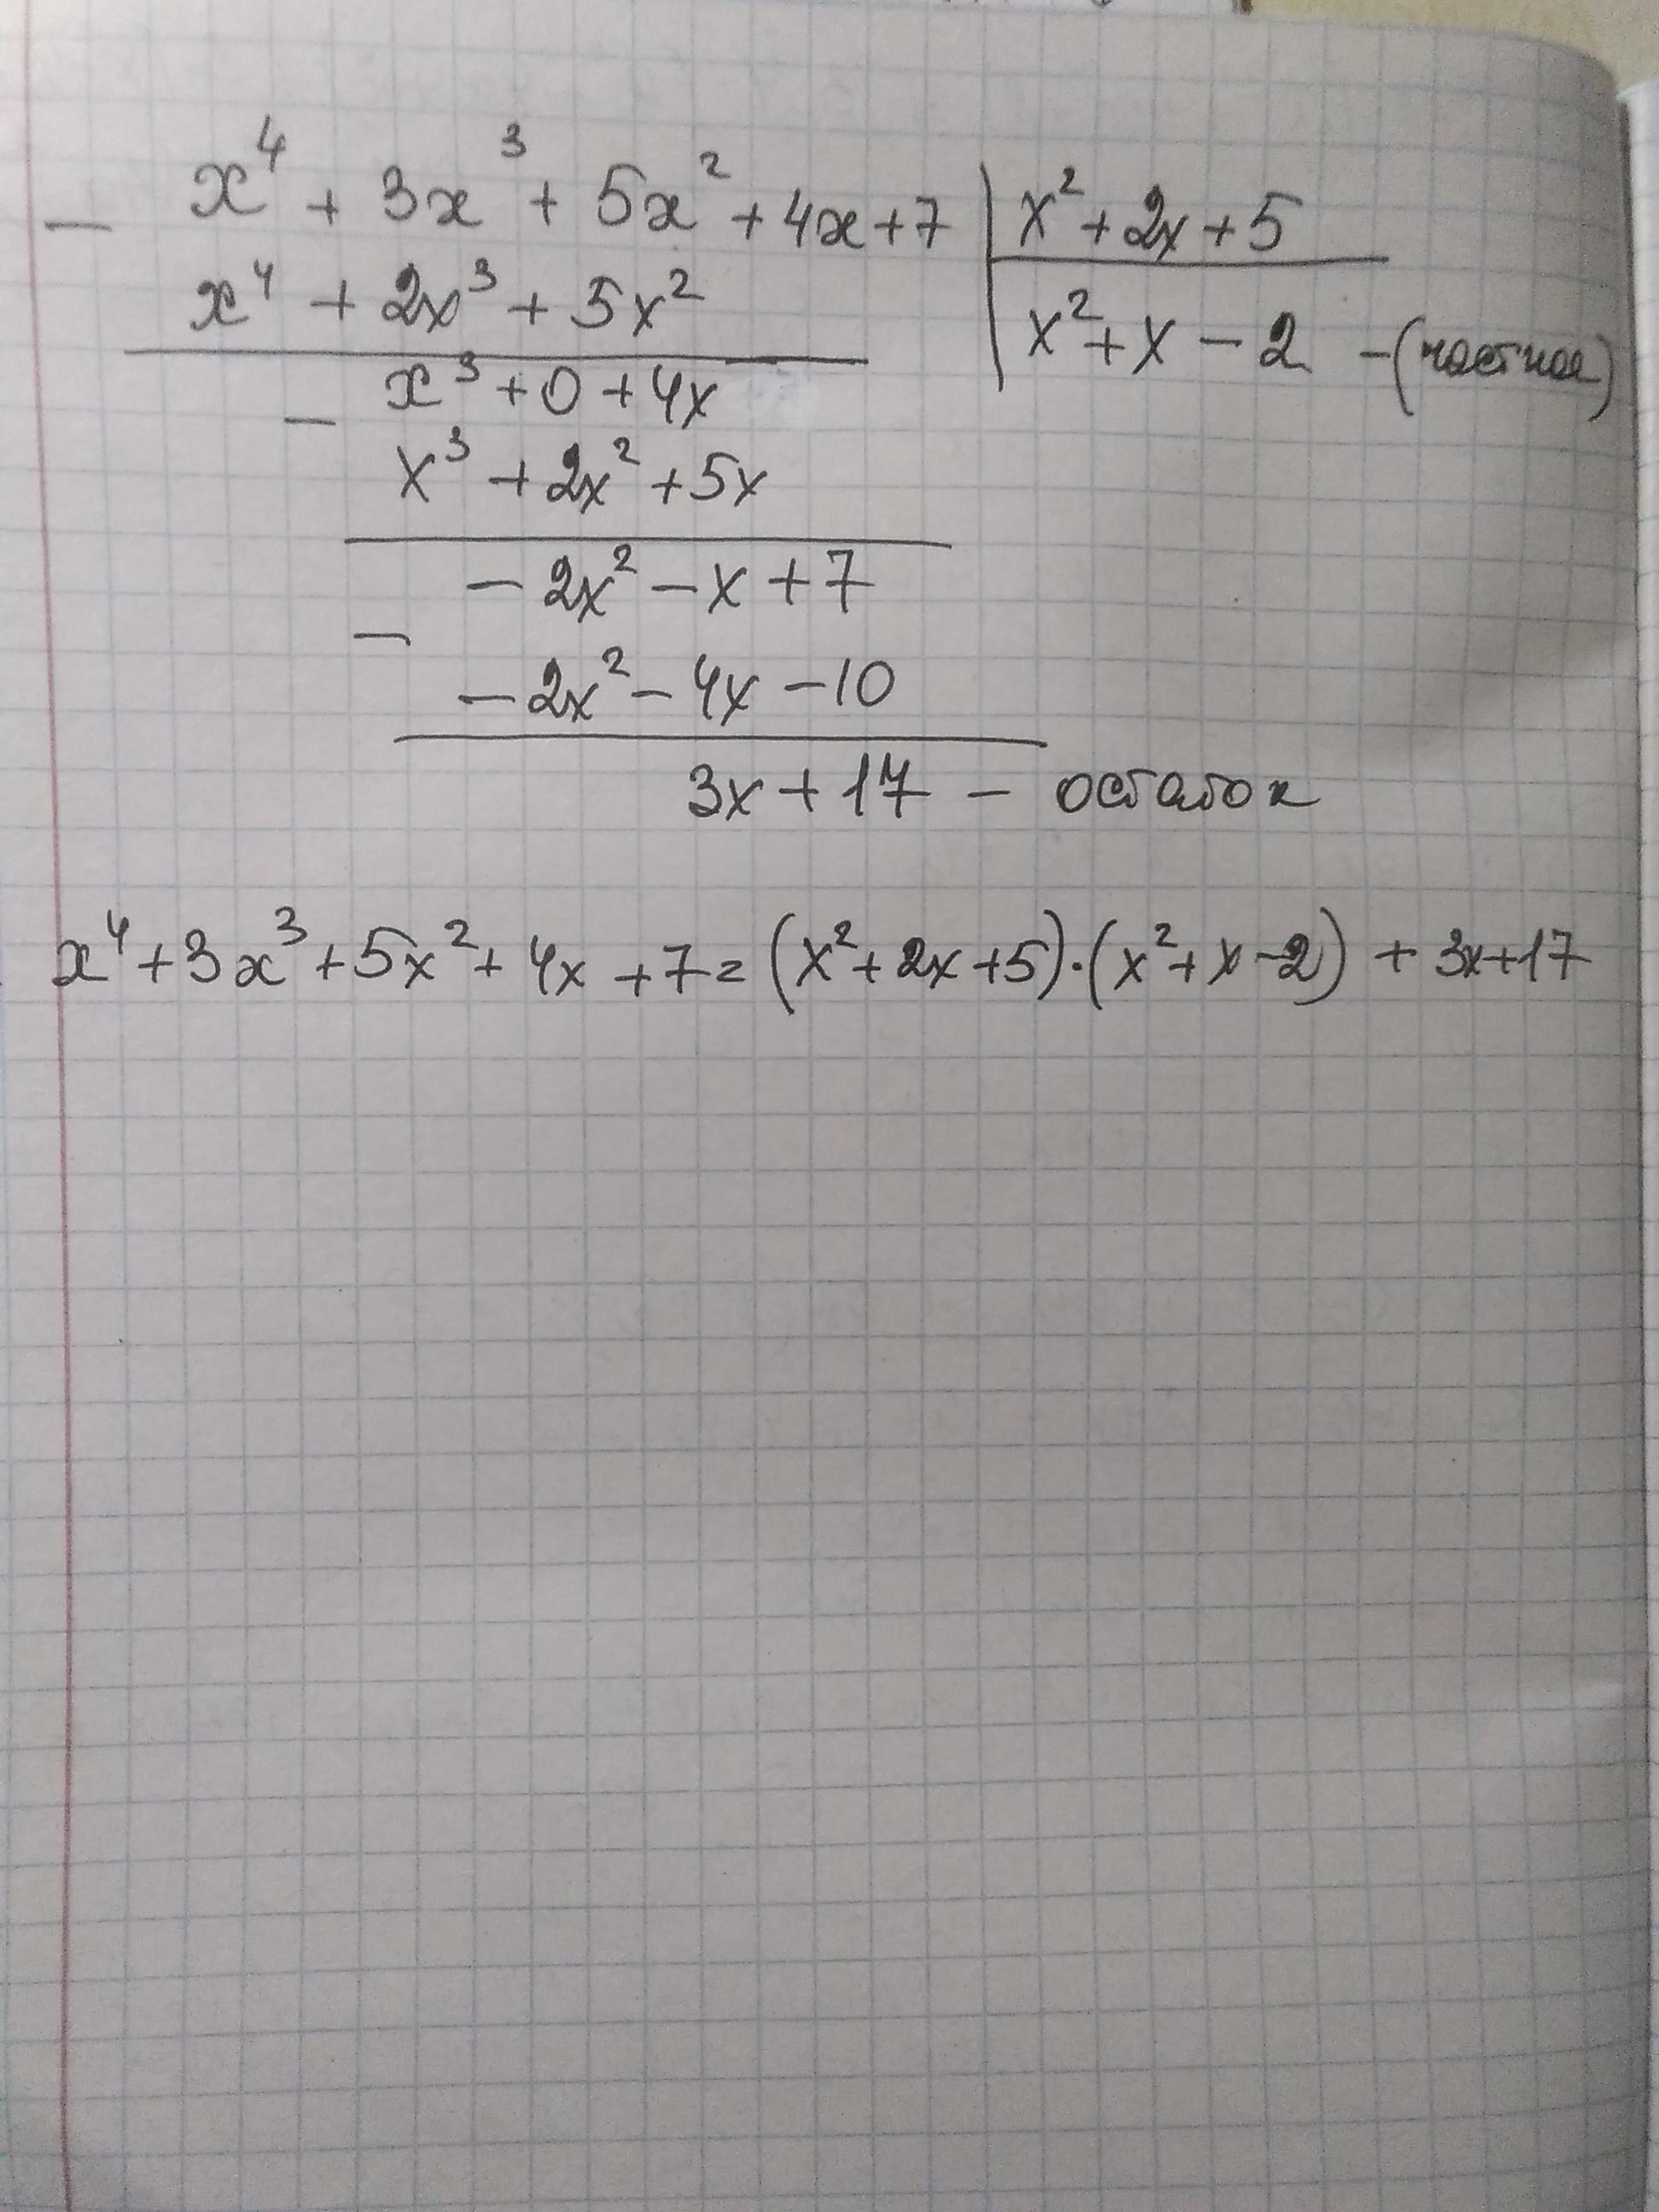 x⁴ + 3x³ + 5x² + 4x + 7 | x² + 2x + 5
−
x⁴ + 2x³ + 5x² | x² + x − 2 − (частное)
x³ + 0 + 4x
−
x³ + 2x² + 5x
− 2x² − x + 7
−
− 2x² − 4x − 10
3x + 17 − остаток
x⁴ + 3x³ + 5x² + 4x + 7 = (x² + 2x + 5) · (x² + x − 2) + 3x + 17